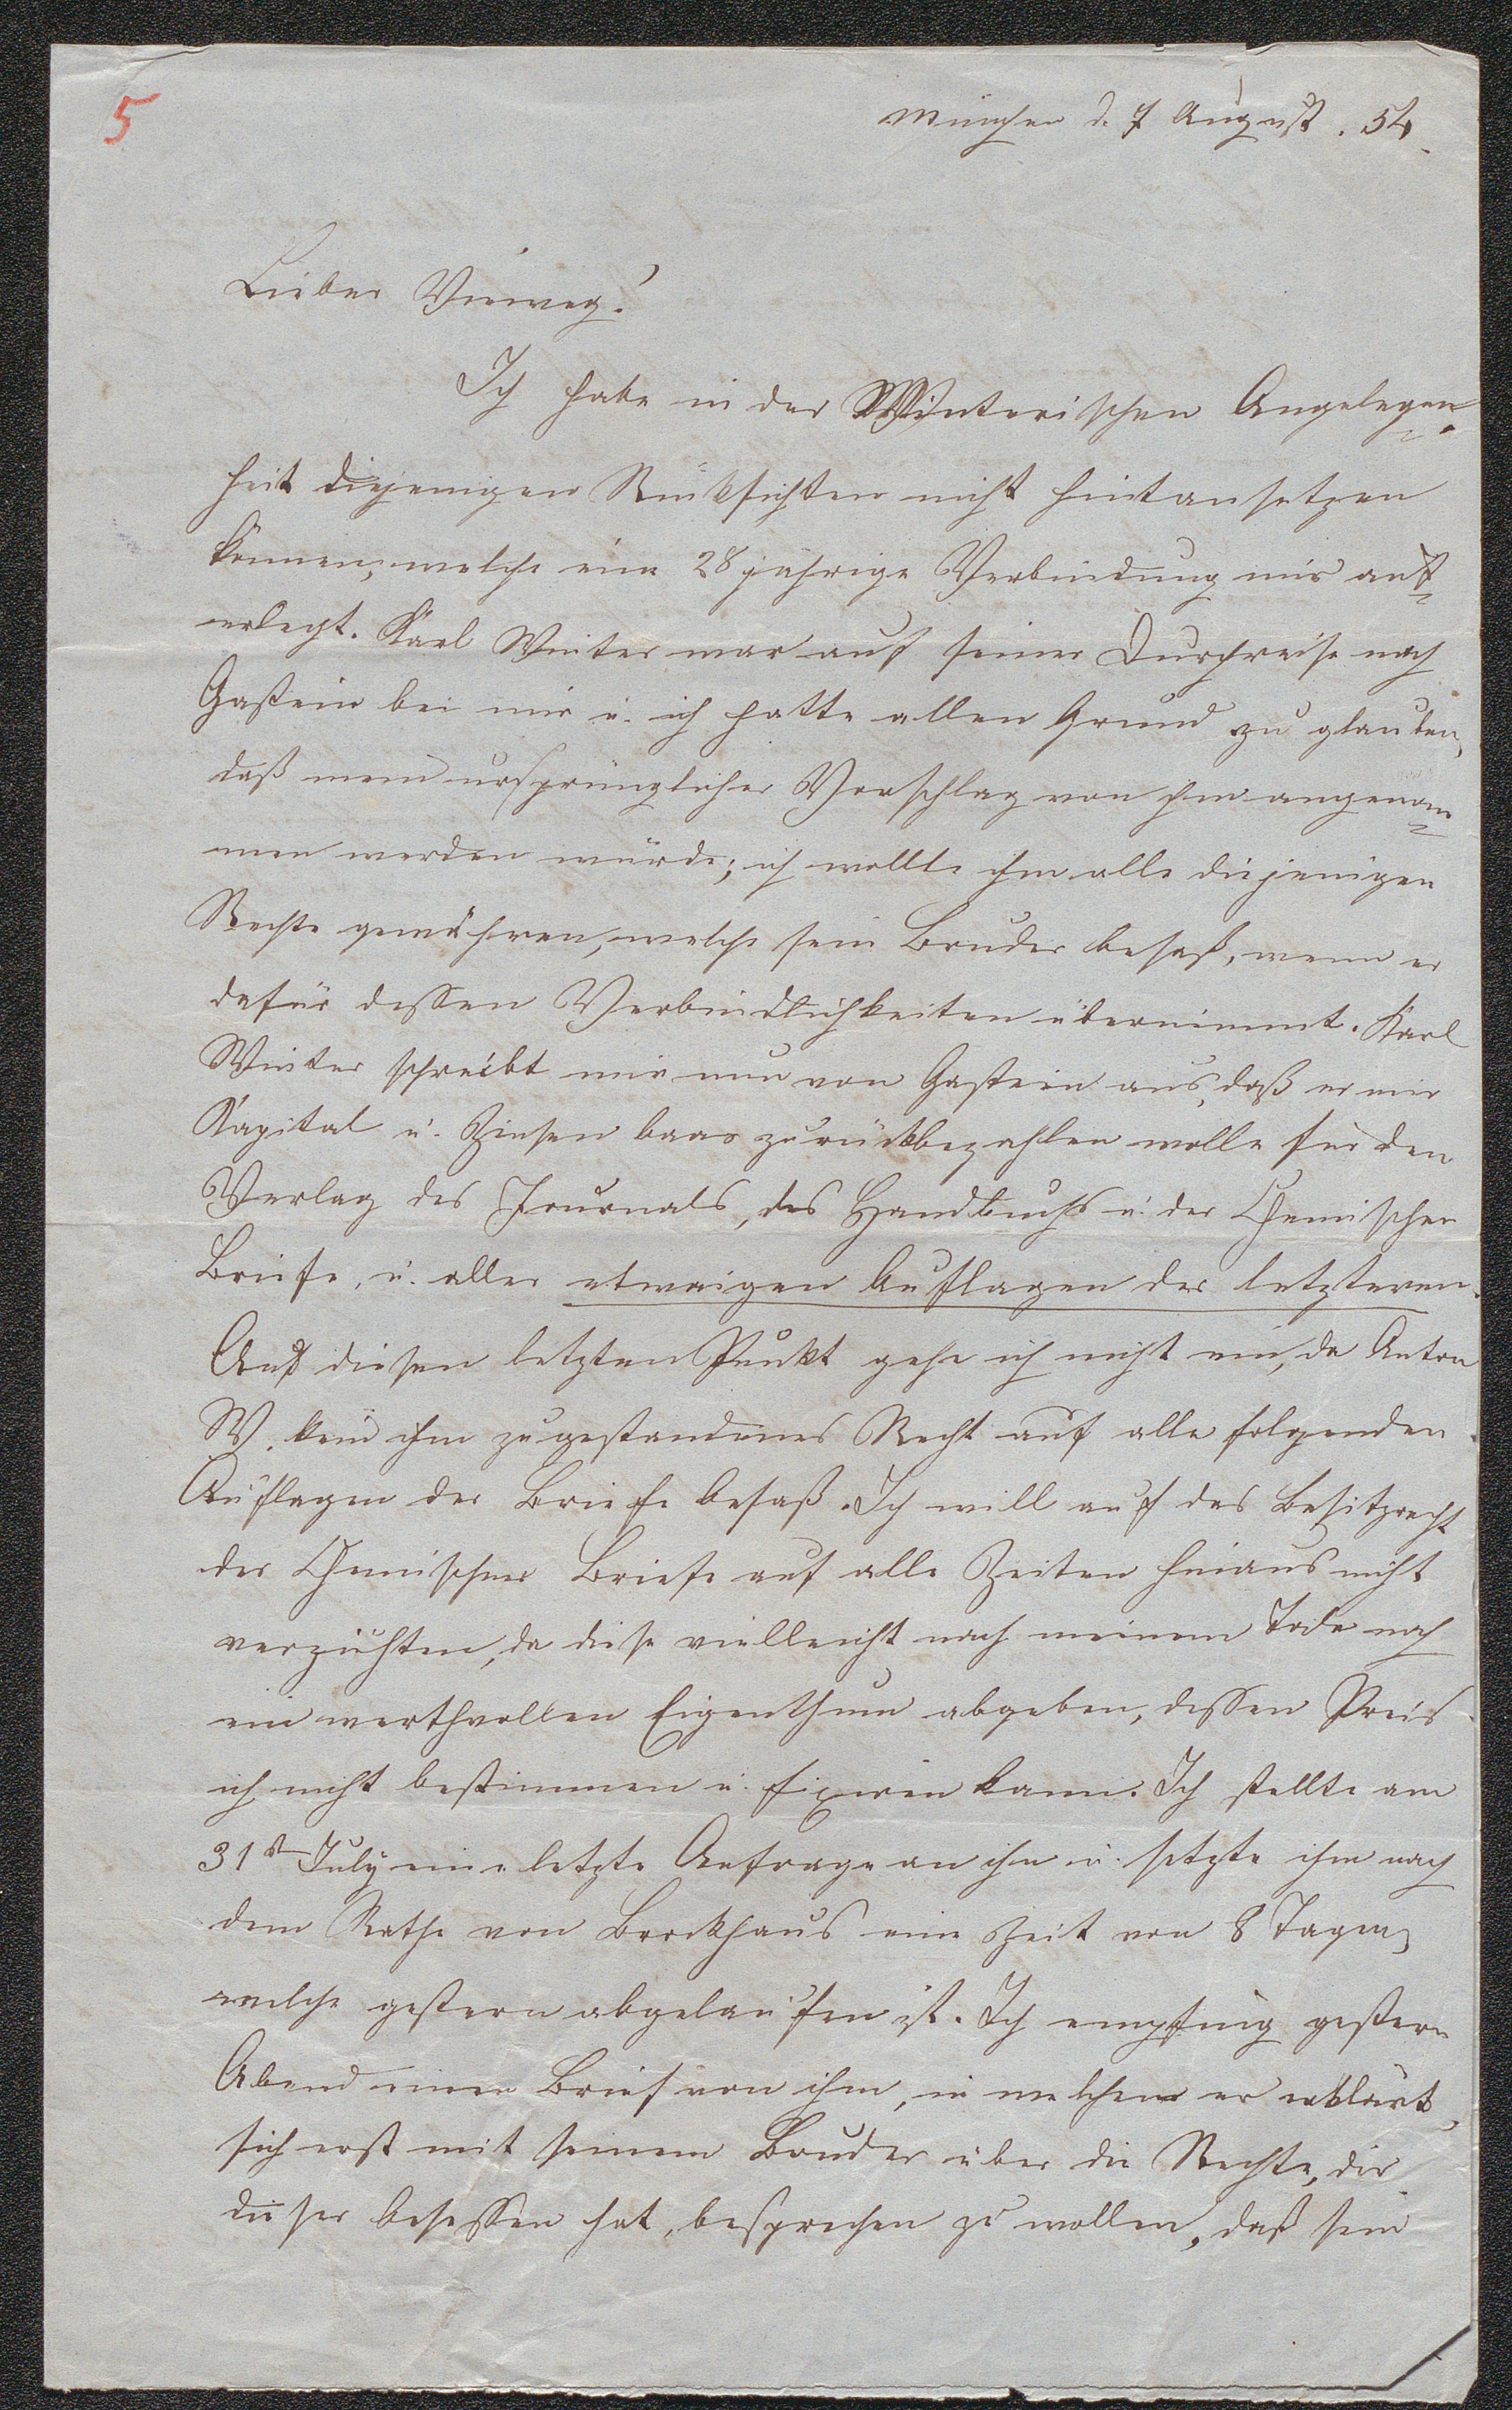 5
München d. 7 August. 54.
Lieber Vieweg!
Ich habe in der Winterischen Angelegen=
heit diejenigen Rüksichten nicht hintansetzen
können, welche eine 28 jährige Verbindung mir auf=
erlegt. Karl Winter war auf seiner Durchreise nach
Gastein bei mir u. ich hatte allen Grund zu glauben,
daß mein ursprünglicher Vorschlag von ihm angenom=
men werden würde; ich wollte ihm alle diejenigen
Rechte gewähren, welche sein Bruder besaß, wenn er
dafür dessen Verbindlichkeiten übernimmt. Karl
Winter schreibt mir nun von Gastein aus, daß er mir
Kapital u. Zinsen baar zurückbezahlen wolle für den
Verlag des Journals, des Handbuchs u. der Chemischen
Briefe, u. aller etwaigen Auflagen der letzteren.
Auf diesen letzten Punkt gehe ich nicht ein, da Anton
W. kein ihm zugestandenes Recht auf alle folgenden
Auflagen der Briefe besaß. Ich will auf das Besitzrecht
der Chemischen Briefe auf alle Zeiten hinaus nicht
verzichten, da diese vielleicht nach meinem Tode noch
ein werthvollen Eigenthum abgeben, dessen Preis
ich nicht bestimmen u. fixiren kann. Ich stellte am
31st July eine letzte Anfrage an ihn u. setzte ihm nach
dem Rathe von Brockhaus eine Zeit von 8 Tagen,
welche gestern abgelaufen ist. Ich empfing gestern
Abend einen Brief von ihm, in welchem er erklärt,
sich erst mit seinem Bruder über die Rechte, die
dieser besessen hat, besprechen zu wollen, daß sein